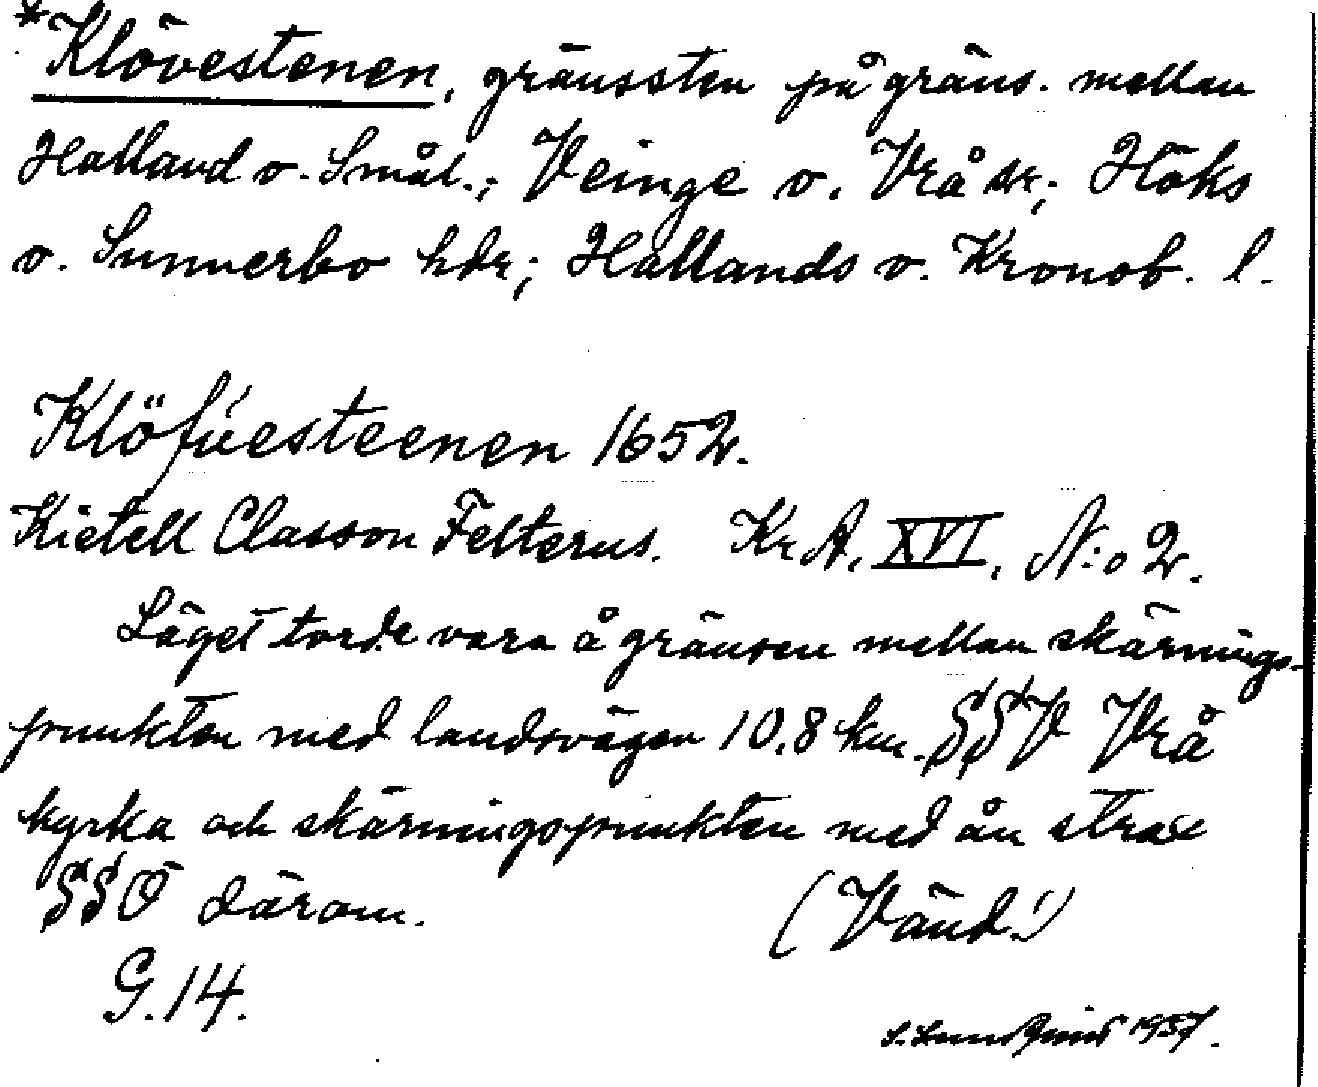 *Klövestenen, gränssten på gräns. mellan
Halland o. Smål.; Veinge o. Vrå skr; Höks
o. Sunnerbo hdr; Hallands o. Kronob. l.
Klöfúesteenen 1652.
Kietell Classon Felterus. Kr A. XVI, N:o 2.
Läget torde vara å gränsen mellan skärnings-
punkten med landsvägen 10,8 km. SSV Vrå
kyrka och skärningspunkten med ån strax
SSO därom. (Vänd!)
G. 14.
S. Lundquist 1937.